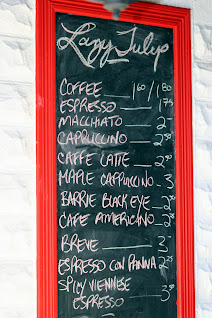 Lazy Tulip
COFFEE 1.60/1.80
ESPRESSO 1.75
MACCHIATO 2.25
CAPPUCCINO 2.50
CAFFE LATTE 2.50
MAPLE CAPPUCCINO 3
BARRIE BLACK EYE 2.50
CAFE AMERICANO 2.25
BREVE 3
ESPRESSO CON PANNA 2.25
SPICY VIENNESE
ESPRESSO 3.50